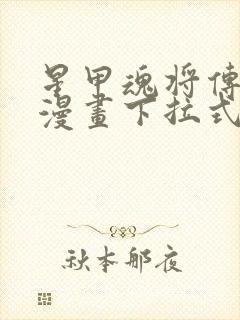 星甲魂将傳
漫畫下拉式
秋本那夜